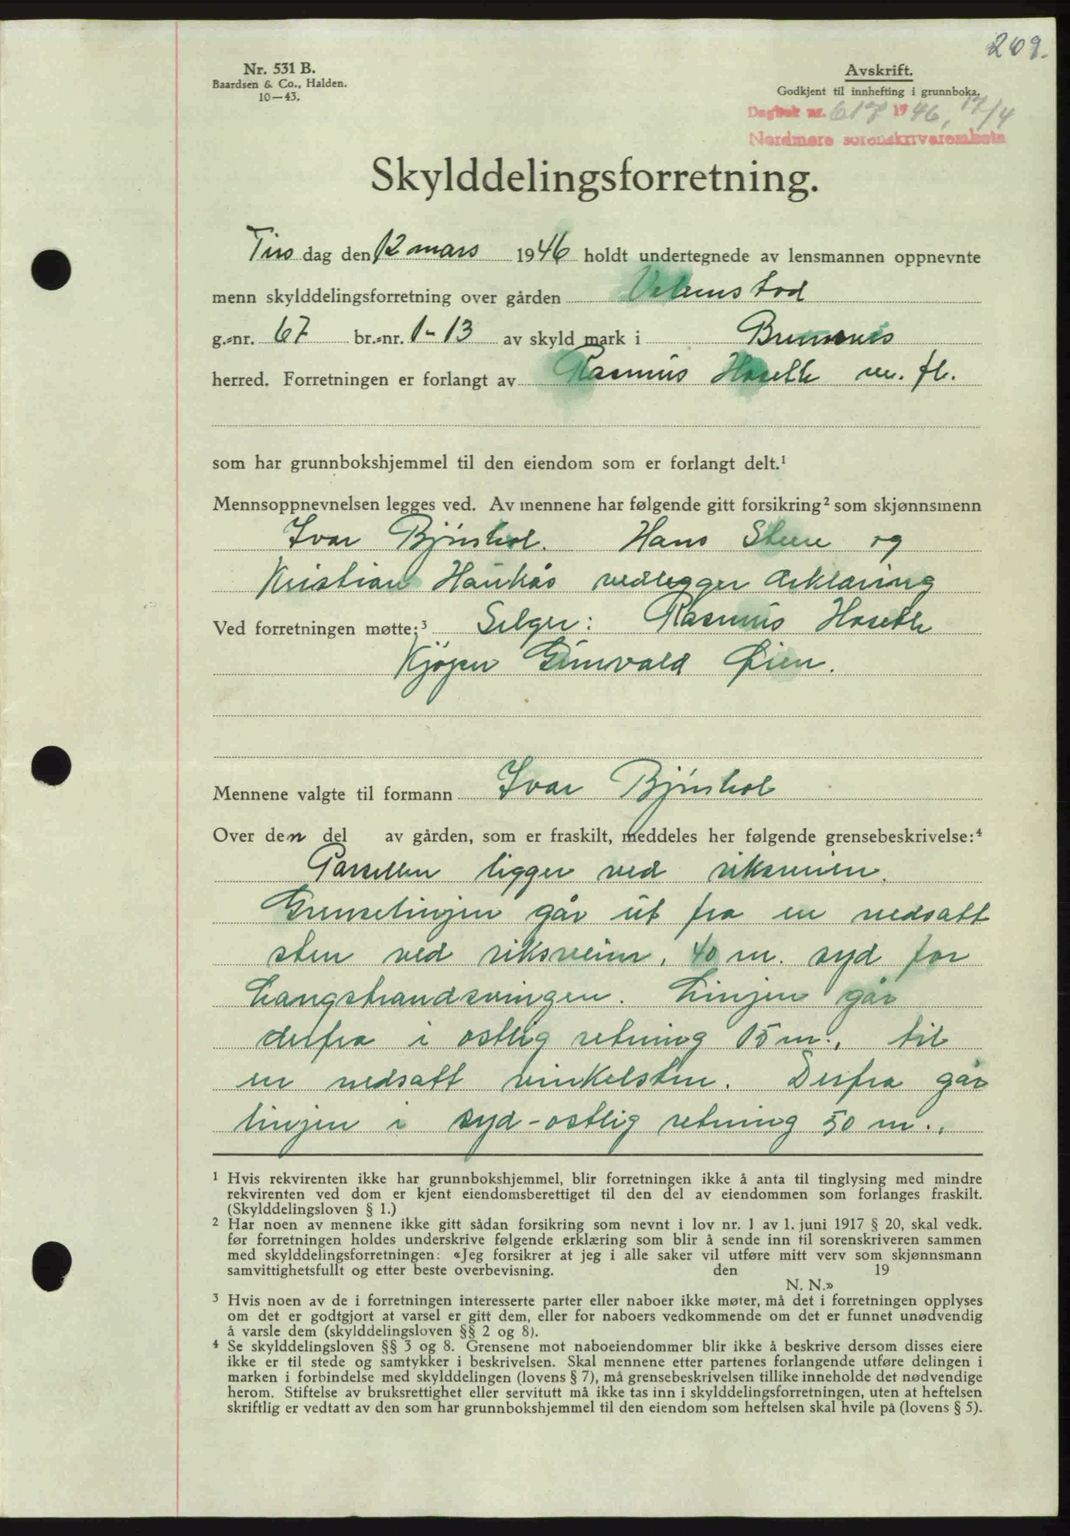 209.
Nr. 531 B.
Baardsen & Co., Halden.
10—43.
Avskrift.
Godkjent til innhefting i grunnboka.
Dagbok nr. 617 1946, 17/4
Nordmøre sorenskriverembete
Skylddelingsforretning.
Tirsdag den 12 mars 1946 holdt undertegnede av lensmannen oppnevnte
menn skylddelingsforretning over gården
g.-nr. 67 br.-nr. 1-13 av skyld mark i Bremsnes
herred. Forretningen er forlangt av Rasmus Hoseth m. fl.
som har grunnbokshjemmel til den eiendom som er forlangt delt.¹
Mennsoppnevnelsen legges ved. Av mennene har følgende gitt forsikring² som skjønnsmenn
Ivar Bjørshol. Hans Stene og
Kristian Haukås vedlegger erklæring
Ved forretningen møtte:³ Selger: Rasmus Hoseth
Kjøper Gunvald Øien.
Mennene valgte til formann Ivar Bjørshol
Over den del av gården, som er fraskilt, meddeles her følgende grensebeskrivelse:⁴
Parsellen ligger ved riksveien.
Grenselinjen går ut fra en nedsatt
sten ved riksveien, 40 m. syd for
Langstrandsvingen. Linjen går
derfra i østlig retning 15 m., til
en nedsatt vinkelsten. Derfra går
linjen i syd-østlig retning 50 m.,
¹ Hvis rekvirenten ikke har grunnbokshjemmel, blir forretningen ikke å anta til tinglysing med mindre
rekvirenten ved dom er kjent eiendomsberettiget til den del av eiendommen som forlanges fraskilt.
(Skylddelingsloven § 1.)
² Har noen av mennene ikke gitt sådan forsikring som nevnt i lov nr. 1 av 1. juni 1917 § 20, skal vedk.
før forretningen holdes underskrive følgende erklæring som blir å sende inn til sorenskriveren sammen
med skylddelingsforretningen: «Jeg forsikrer at jeg i alle saker vil utføre mitt verv som skjønnsmann
samvittighetsfullt og etter beste overbevisning. den 19
N. N.»
³ Hvis noen av de i forretningen interesserte parter eller naboer ikke møter, må det i forretningen opplyses
om det er godtgjort at varsel er gitt dem, eller for naboers vedkommende om det er funnet unødvendig
å varsle dem (skylddelingsloven §§ 2 og 8).
⁴ Se skylddelingsloven §§ 3 og 8. Grensene mot naboeiendommer blir ikke å beskrive dersom disses eiere
ikke er til stede og samtykker i beskrivelsen. Skal mennene etter partenes forlangende utføre delingen i
marken i forbindelse med skylddelingen (lovens § 7), må grensebeskrivelsen tillike inneholde det nødvendige
herom. Stiftelse av bruksrettighet eller servitutt må ikke tas inn i skylddelingsforretningen, uten at heftelsen
skriftlig er vedtatt av den som har grunnbokshjemmel til den eiendom som heftelsen skal hvile på (lovens § 5).